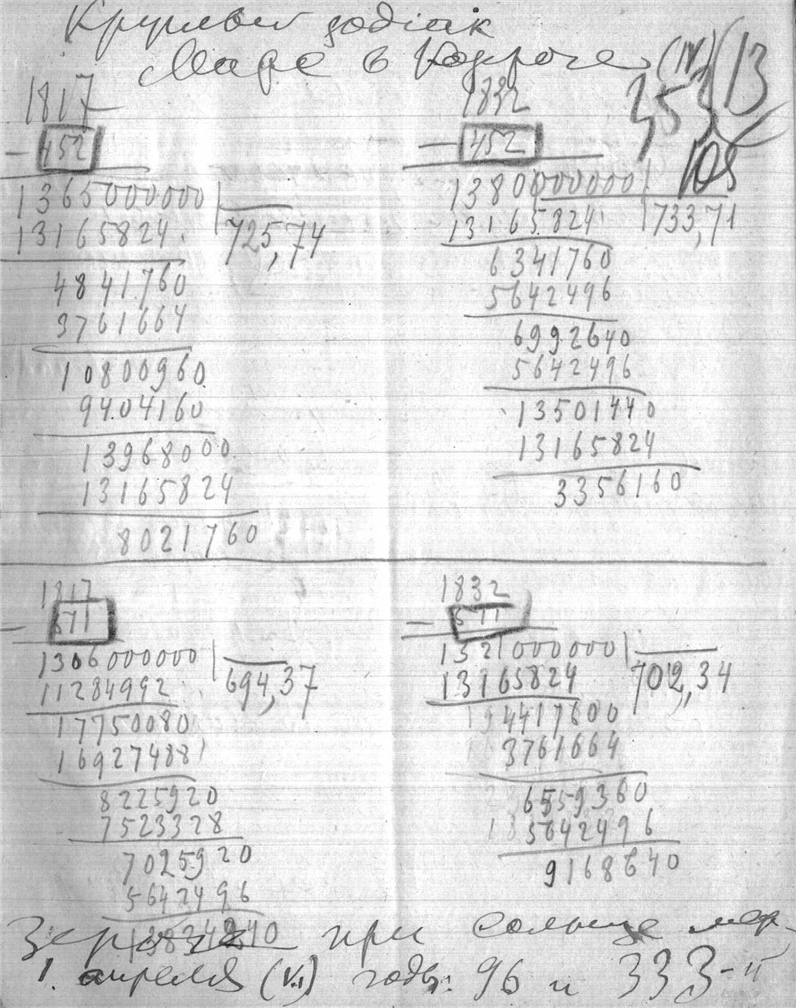 Круглый зодіак
Марс в Козероге (IV) (13
353
108
1817
- 452
1365000000 | 725,74
13165824
4841760
3761664
10800960
9404160
13968000
13165824
8021760
1832
- 452
1380000000 | 733,71
13165824
6341760
5642496
6992640
5642496
13501440
13165824
3356160
1817
- 511
1306000000 | 694,37
11284992
17750080
16927488
8225920
7523328
7025920
5642496
13834240
1832
- 511
1321000000 | 702,34
13165824
4417600
3761664
6559360
5642496
9168640
при солнце
1. апреля годы. 96 и 333-й